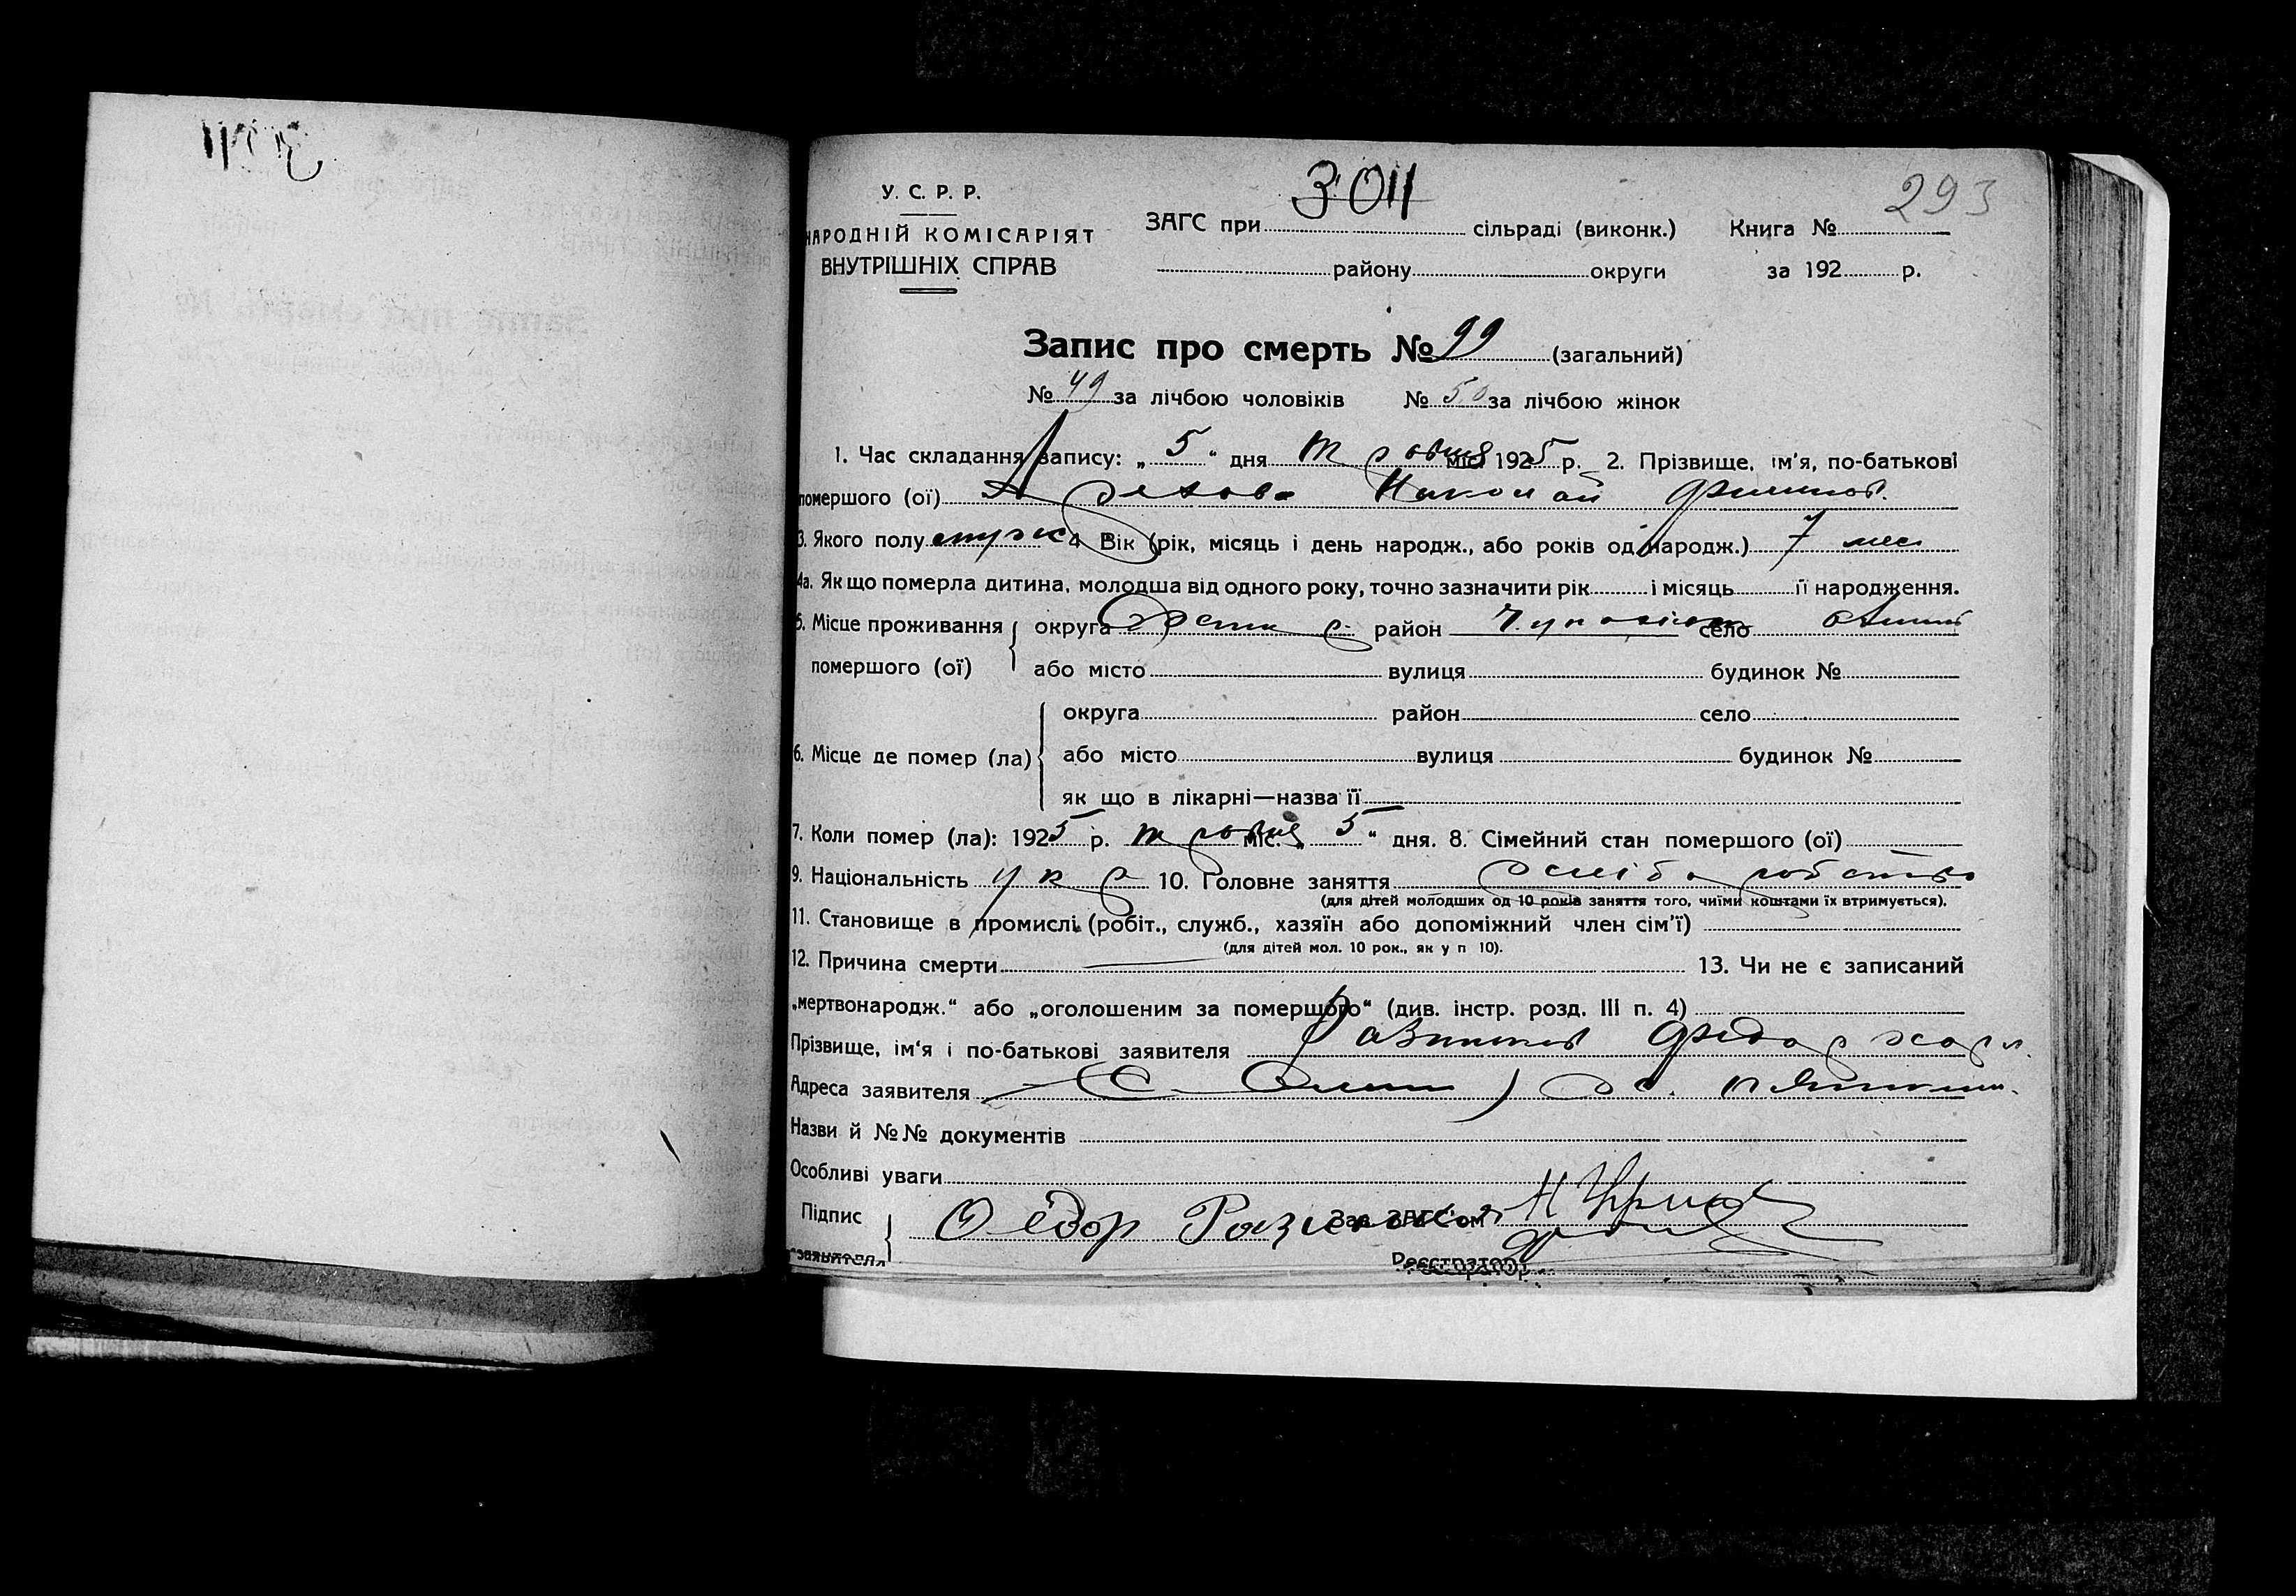 3011
293
У. С. Р. Р.
НАРОДНІЙ КОМІСАРІЯТ
ВНУТРІШНІХ СПРАВ
ЗАГС при сільраді (виконк.) Книга №
району округи за 192 р.
Запис про смерть № 99 (загальний)
№ 49 за лічбою чоловіків № 50 за лічбою жінок
1. Час складання запису: „ 5 “ дня травня міс. 1925 р. 2. Прізвище, ім'я, по-батькові
помершого (ої) Николай
3. Якого полу 4 Вік (рік, місяць і день народж., або років од народж.) 7 мес
4а. Як що померла дитина, молодша від одного року, точно зазначити рік і місяць її народження.
5. Місце проживання округа район село
помершого (ої) або місто вулиця будинок №
округа район село
6. Місце де помер (ла) або місто вулиця будинок №
як що в лікарні—назва її
7. Коли помер (ла): 1925 р. травня міс. „ 5 “ дня. 8. Сімейний стан помершого (ої)
9. Національність укр 10. Головне заняття
(для дітей молодших од 10 років заняття того, чиїми коштами їх втримується).
11. Становище в промислі (робіт., служб., хазяїн або допоміжний член сім'ї)
(для дітей мол. 10 рок., як у п 10).
12. Причина смерти 13. Чи не є записаний
„мертвонародж.“ або „оголошеним за помершого“ (див. інстр. розд. III п. 4)
Прізвище, ім'я і по-батькові заявителя Федор
Адреса заявителя
Назви й №№ документів
Особливі уваги
Підпис Зав. ЗАГС'ом
заявителя Реєстратор